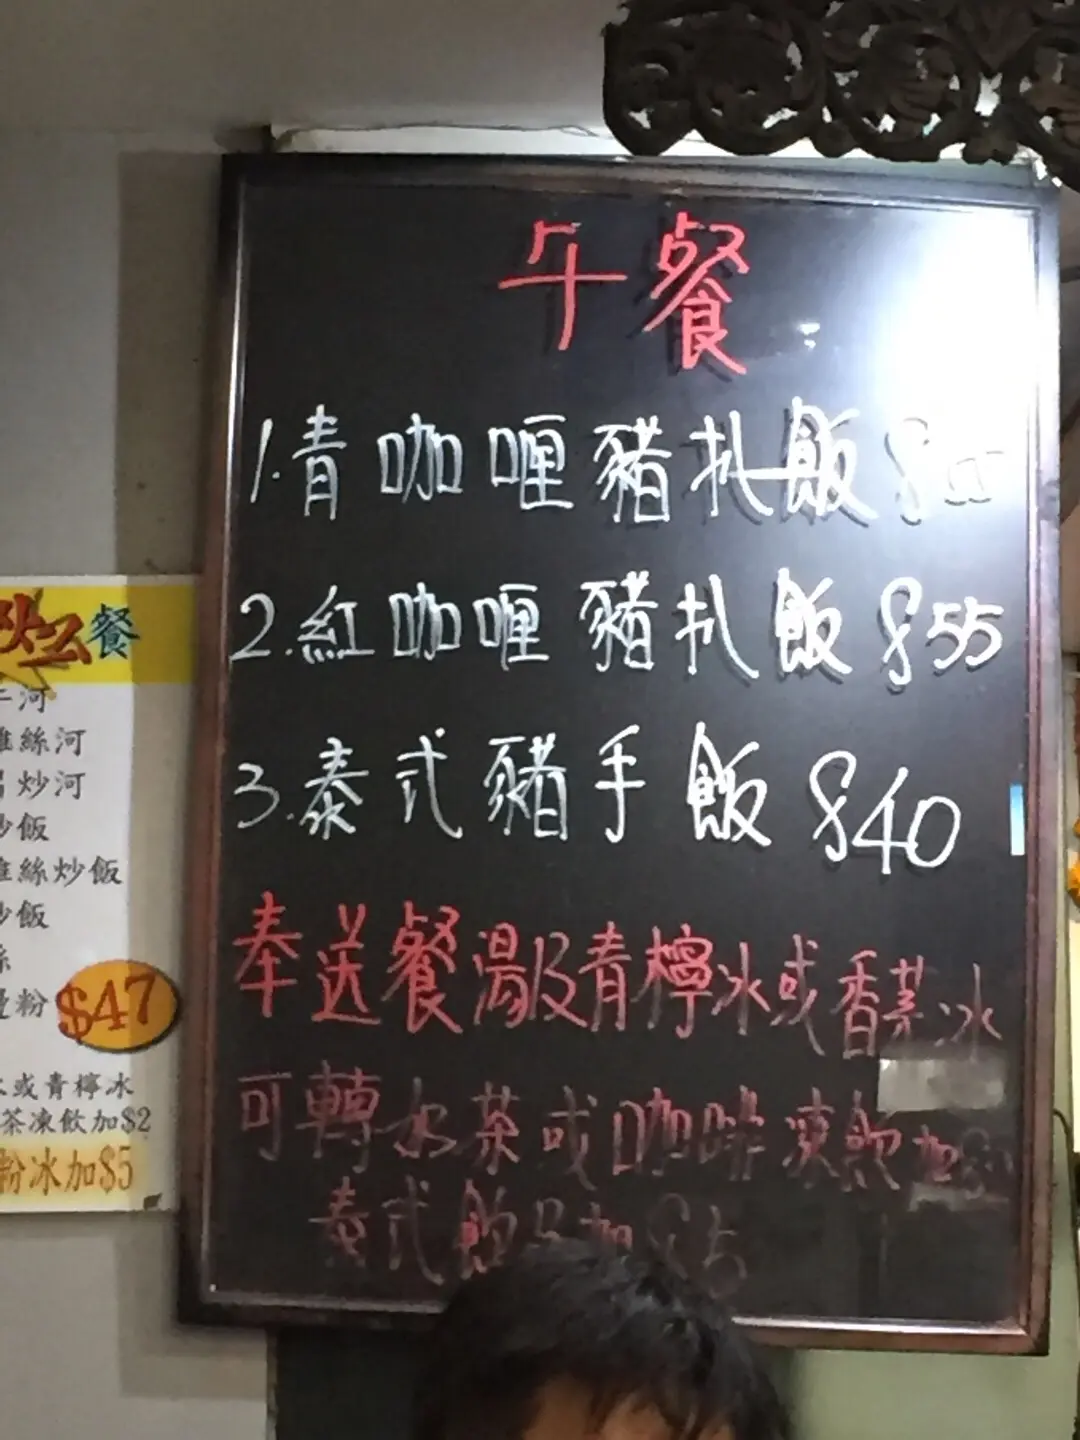 午餐
1.青咖喱豬扒飯$
2.紅咖喱豬扒飯$55
3.泰式豬手飯$40
奉送餐湯及青檸冰或香茅冰
可轉水茶或咖啡凍飲加
泰式飲品加$5
餐
河
絲河
炒河
炒飯
絲炒飯
炒飯
粉
$47
或青檸冰
茶凍飲加$2
粉冰加$5